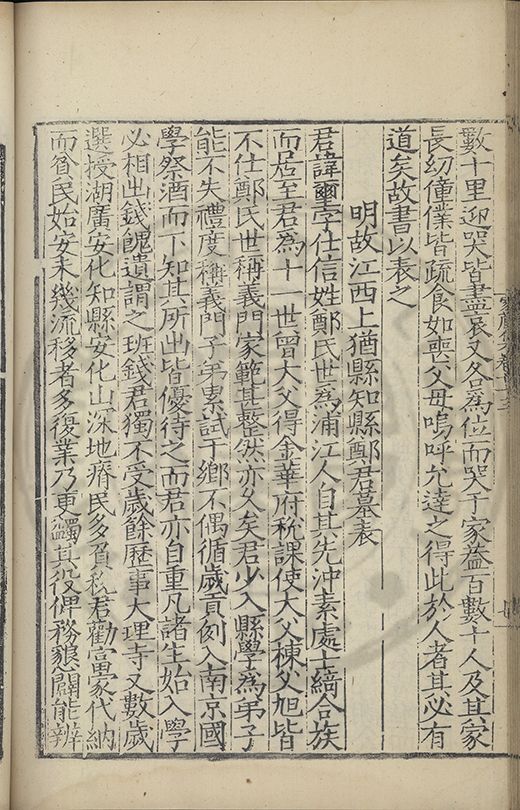 數十里迎哭皆盡哀又各為位而哭于家葢百數十人及其家
長幼僮僕皆疏食如喪父母嗚呼允達之得此於人者其必有
道矣故書以表之
明故江西上猶縣知縣鄭君墓表
君諱璽字仕信姓鄭氏世為浦江人自其先冲素處士綺合族
而居至君為十一世曾大父得金華府稅課使大父棟父旭皆
不仕鄭氏世稱義門家範甚整然亦久矣君少入縣學為弟子
能不失禮度稱義門子弟累試于鄉不偶循歲貢例入南京國
學祭酒而下知其所出皆優待之而君亦自重凡諸生始入學
必相出錢餽遺謂之班錢君獨不受歲餘歷事大理寺又數歲
選授湖廣安化知縣安化山深地瘠民多負稅君勸富家代納
而貧民始安未幾流移者多復業乃更蠲其役俾務懇闢能辨